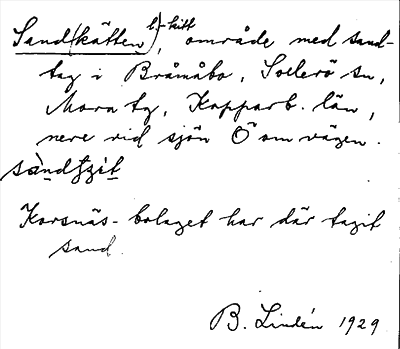 Sand(kätten l. -kitt), område med sand-
tag i Bråmåbo, Sollerö sn,
Mora tg, Kopparb. län,
nere vid sjön Ö om vägen.
Korsnäs-bolaget har där tagit
sand.
B. Lindén 1929